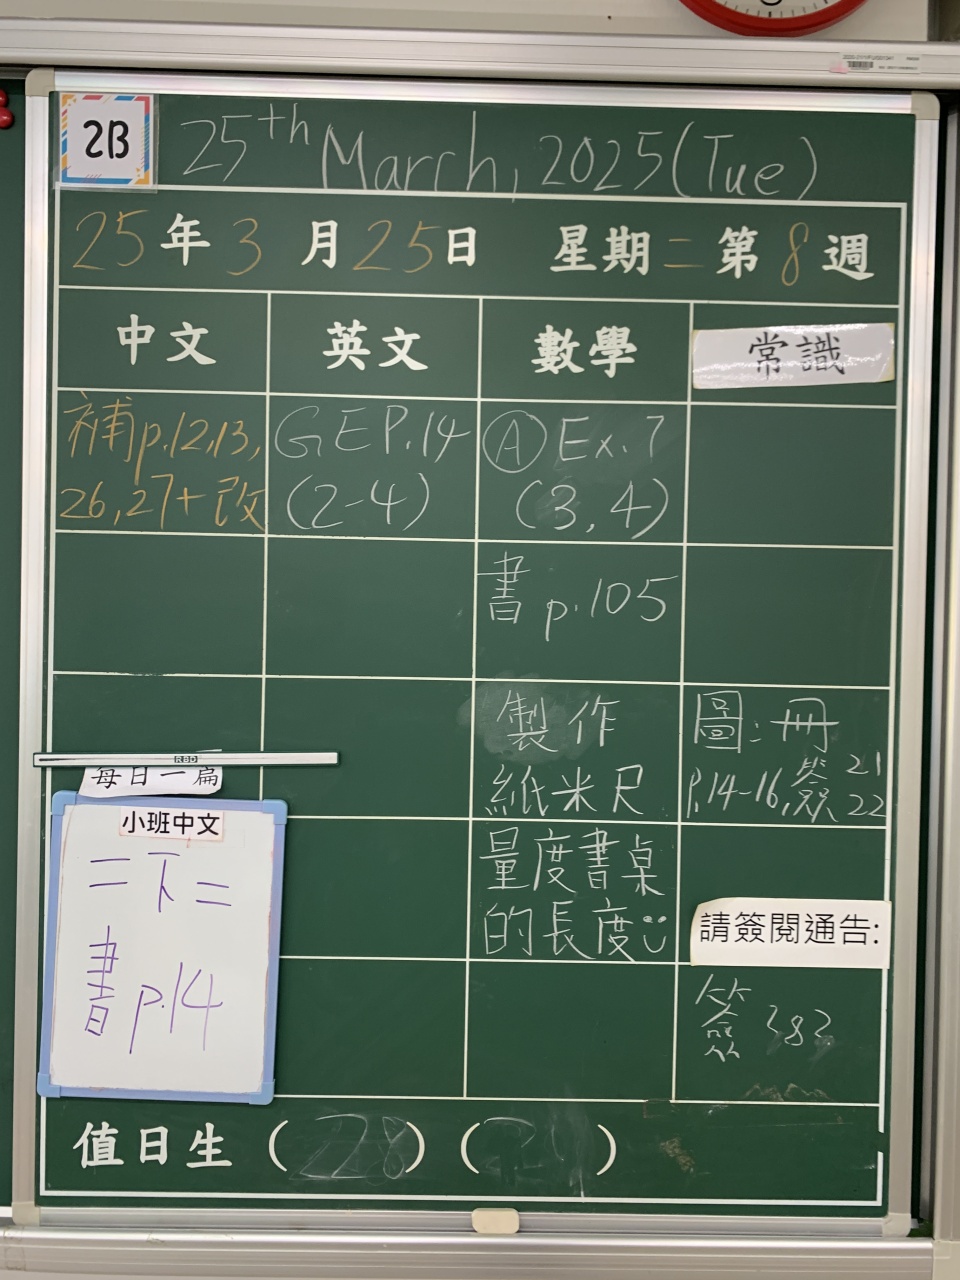 2B
25th March, 2025 (Tue)
25年3月25日 星期二第8週
中文 英文 數學 常識
補p.12,13,
26,27+改
GE P.14
(2-4)
Ⓐ Ex. 7
(3, 4)
書 p.105
製作
紙米尺
圖:冊
p.14-16,簽 21
22
量度書桌
的長度
RBD
每日一篇
小班中文
二下二
書 p.14
請簽閱通告:
簽 382
值日生 (28) ( )